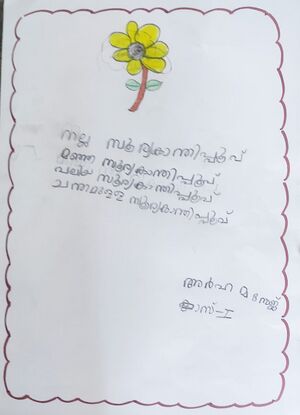 നല്ല സൂര്യകാന്തിപ്പൂവ്
മഞ്ഞ സൂര്യകാന്തിപ്പൂവ്
വലിയ സൂര്യകാന്തിപ്പൂവ്
ചന്തമുള്ള സൂര്യകാന്തിപ്പൂവ്
അർഹ മനോജ്
ക്ലാസ്-I